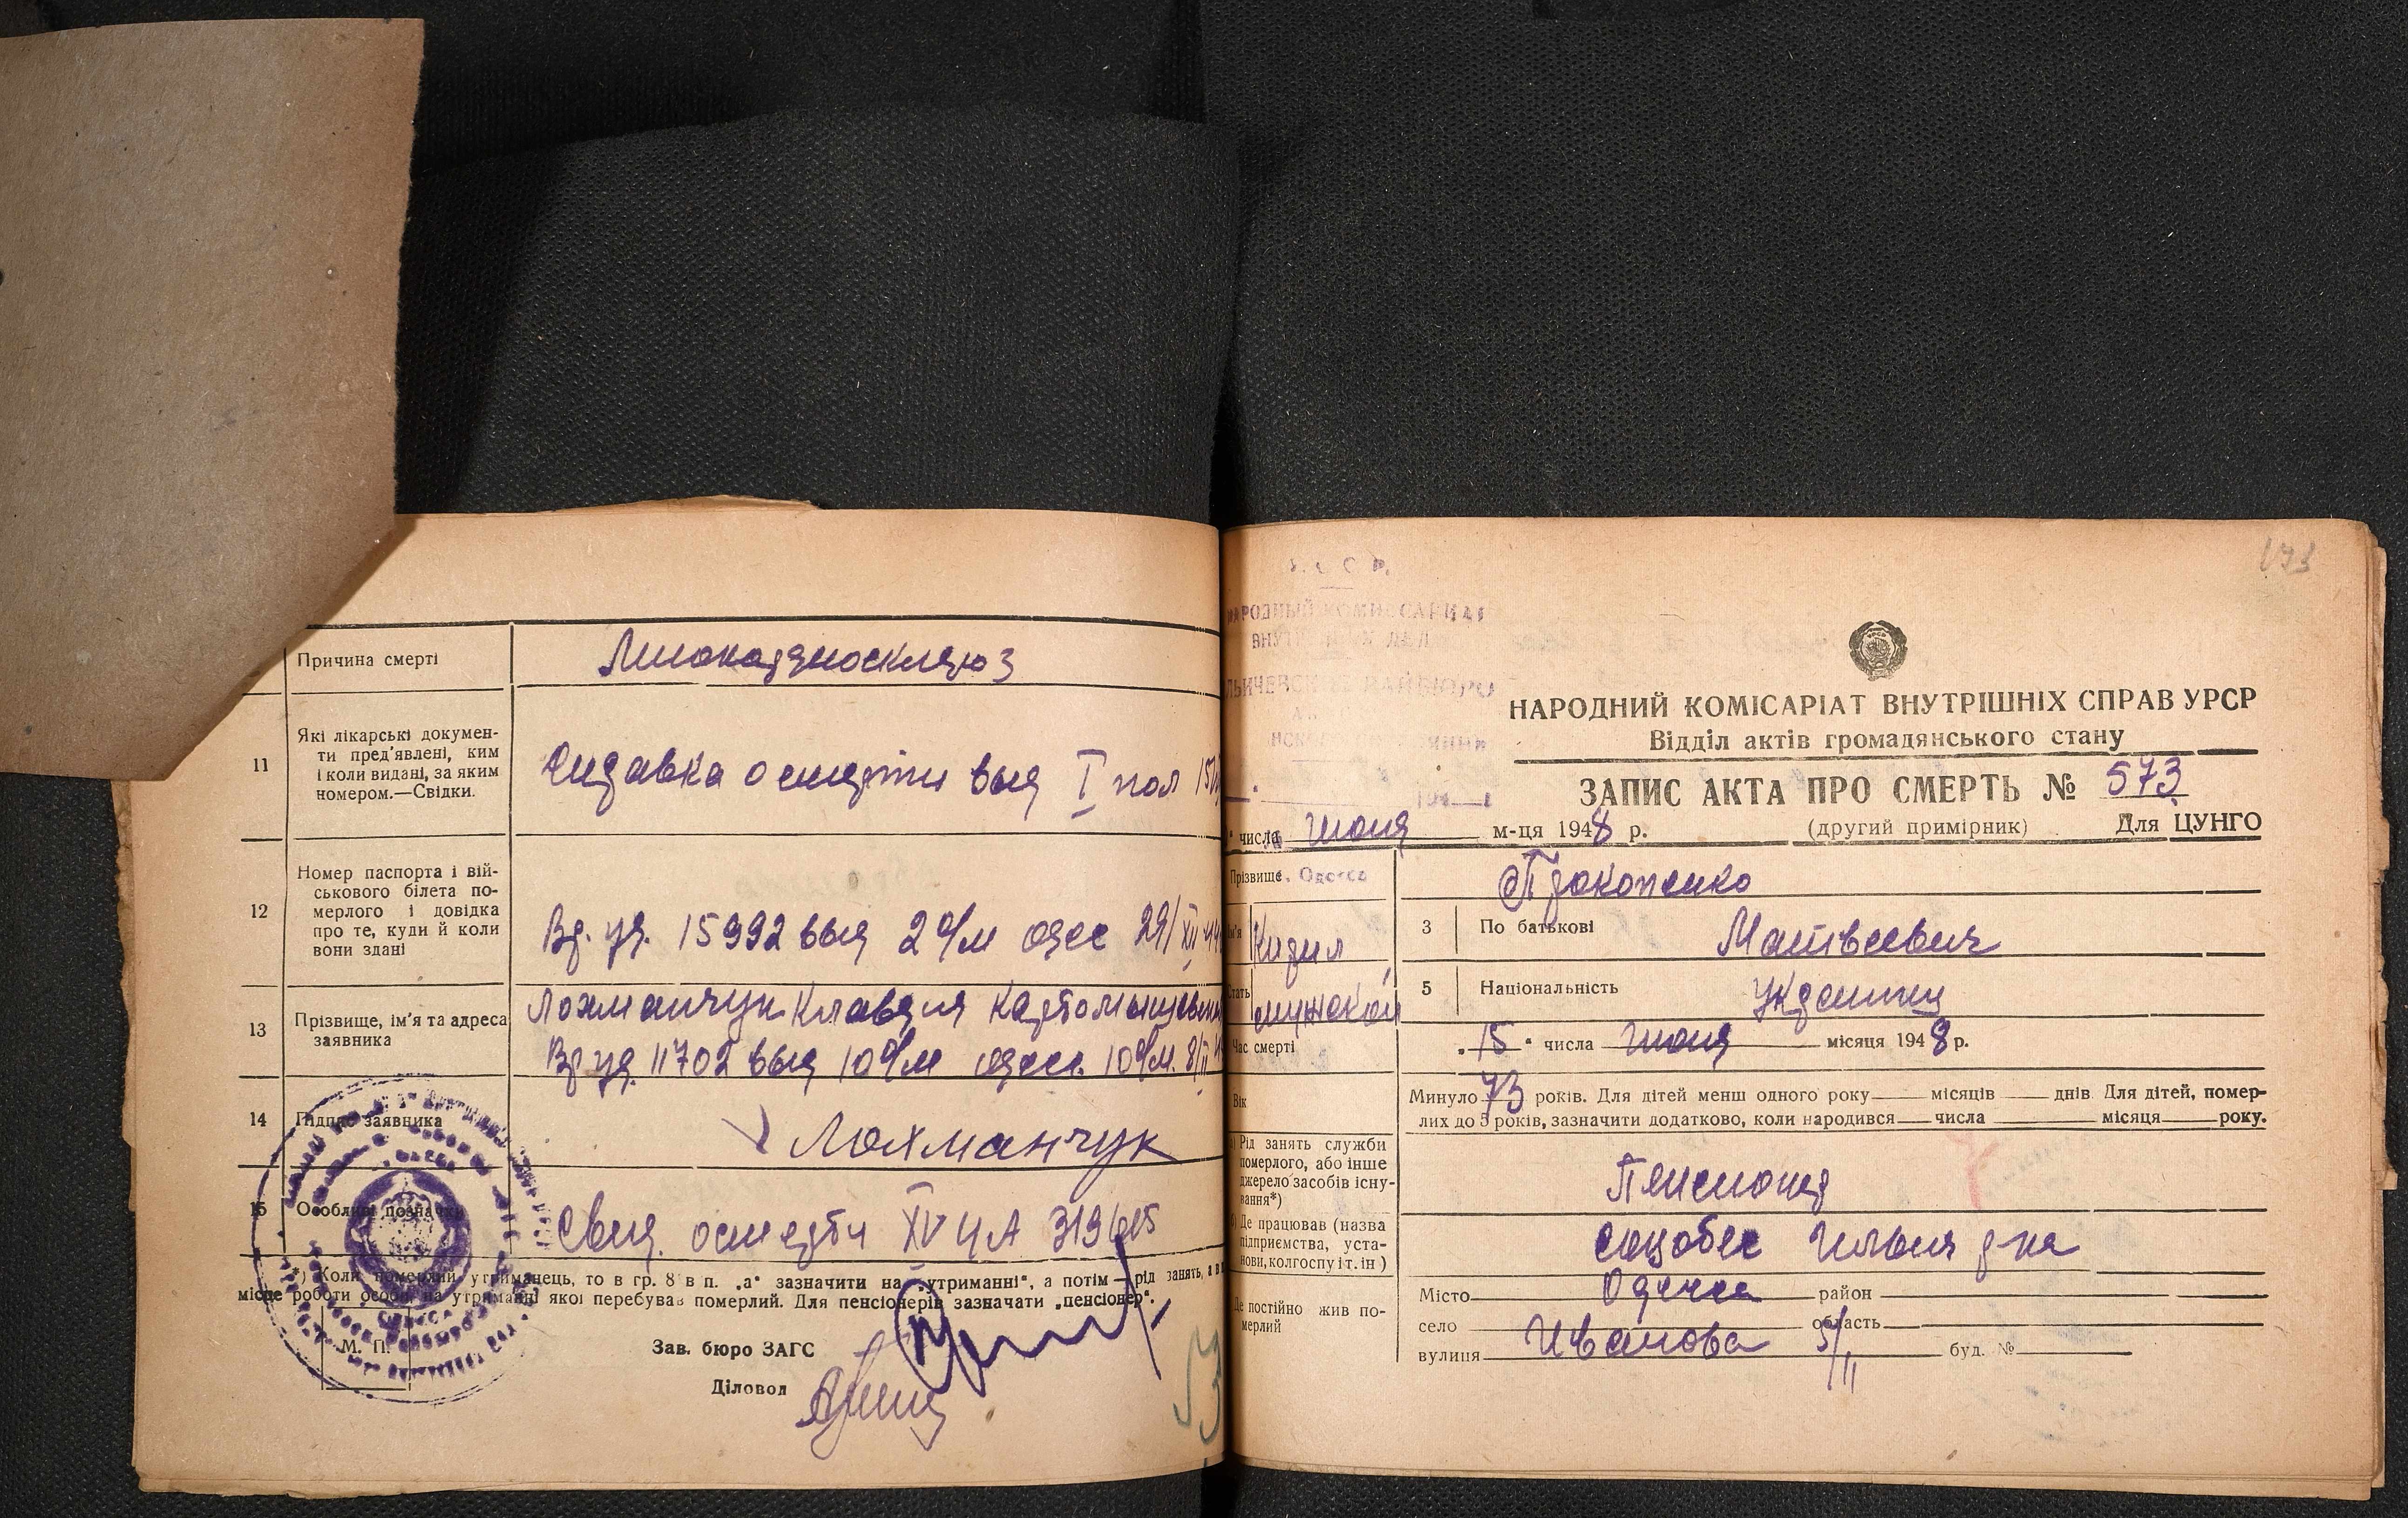 Причина смерті
Миокардиосклероз
11
Які лікарські докумен-
ти пред'явлені, ким
і коли видані, за яким
номером.—Свідки.
Справка о смерти выд I пол 15/VI
12
Номер паспорта і вій-
ськового білета по-
мерлого і довідка
про те, куди й коли
вони здані
Вр. уд. 15992 выд 2 о/м одес 29/XII 44
13
Прізвище, ім'я та адреса
заявника
Лохманчук Клавдия
Вр уд. 11702 выд 10 о/м одесс. 10 о/м. 8/II
14
Підпис заявника
Лохманчук
15
Особливі позначки
Свид. о смерти XV ЧА
*) Коли померлий утриманець, то в гр. 8 в п. „а" зазначити на „утриманні", а потім — рід занять, а в
місце роботи особи, на утриманні якої перебував померлий. Для пенсіонерів зазначати „пенсіонер".
М. П.
Зав. бюро ЗАГС
Діловод
53
173
У. С С Р.
НАРОДНЫЙ КОМИССАРИАТ
ВНУТРЕННИХ ДЕЛ
ИЛЬИЧЕВСКОЕ РАЙБЮРО
НАРОДНИЙ КОМІСАРІАТ ВНУТРІШНІХ СПРАВ УРСР
Відділ актів громадянського стану
ЗАПИС АКТА ПРО СМЕРТЬ № 573
" числа июня м-ця 1948 р. (другий примірник) Для ЦУНГО
Прізвище
г. Одесса
Прокопенко
Ім'я
Кирил
3
По батькові
Матвеевич
Стать
мужской
5
Національність
Украинец
Час смерті
„15" числа июня місяця 1948 р.
Вік
Минуло 73 років. Для дітей менш одного року місяців днів Для дітей, помер-
лих до 5 років, зазначити додатково, коли народився числа місяця року.
Рід занять служби
померлого, або інше
джерело засобів існу-
вання*)
Пенсионер
Де працював (назва
підприємства, уста-
нови, колгоспу і т. ін )
Собобес Ильич р-на
Де постійно жив по-
мерлий
Місто Одесса район
село область
вулиця Иванова 5/11 буд. №